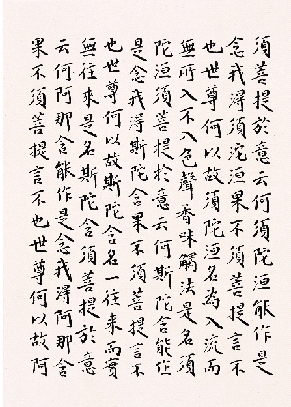 須菩提於意云何須陀洹能作是
念我得須陀洹果不須菩提言不
也世尊何以故須陀洹名為入流而
無所入不入色聲香味觸法是名須
陀洹須菩提於意云何斯陀含能作
是念我得斯陀含果不須菩提言不
也世尊何以故斯陀含名一往來而實
無往來是名斯陀含須菩提於意
云何阿那含能作是念我得阿那含
果不須菩提言不也世尊何以故阿